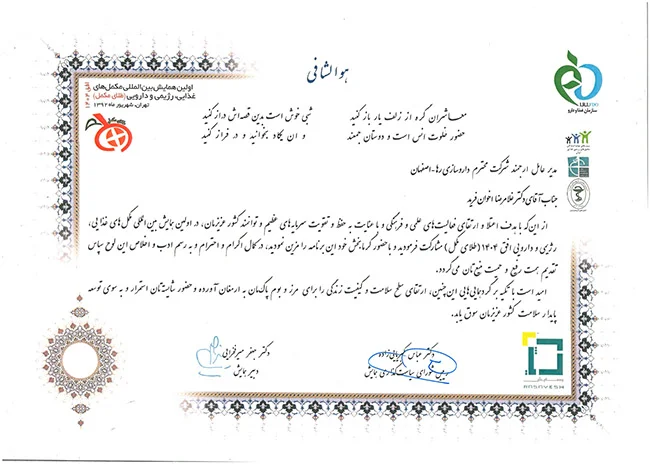 هوالشافی
اولین همایش بین‌المللی مکمل‌های
غذایی، رژیمی و دارویی (طلای مکمل)
تهران، شهریور ماه ۱۳۹۲
افق ۱۴۰۴
سازمان غذا و دارو
معاشران گره از زلف یار باز کنید
شبی خوش است بدین قصه‌اش دراز کنید
حضور خلوت انس است و دوستان جمعند
و ان یکاد بخوانید و در فراز کنید
مدیر عامل ارجمند شرکت محترم داروسازی رها-اصفهان
جناب آقای دکتر غلامرضا اخوان فرید
از این‌که با هدف اعتلا و ارتقای فعالیت‌های علمی و فرهنگی و با عنایت به حفظ و تقویت سرمایه‌های عظیم و توانمند کشور عزیزمان، در اولین همایش بین‌المللی مکمل‌های غذایی،
رژیمی و دارویی افق ۱۴۰۴ (طلای مکمل) مشارکت فرمودید و با حضور گرمابخش خود این برنامه را مزین نمودید، در کمال اکرام و احترام و به رسم ادب و اخلاص این لوح سپاس
تقدیم همت رفیع و حمیت منیع‌تان می‌گردد.
امید است با تکیه بر گردهمایی‌هایی این‌چنین، ارتقای سطح سلامت و کیفیت زندگی را برای مرز و بوم پاک‌مان به ارمغان آورده و حضور شایسته‌تان استمرار و به سوی توسعه
پایدار سلامت کشور عزیزمان سوق یابد.
دکتر عباس کبریایی زاده
رییس شورای سیاست‌گذاری همایش
دکتر جعفر میرفخرایی
دبیر همایش
RASAYESH